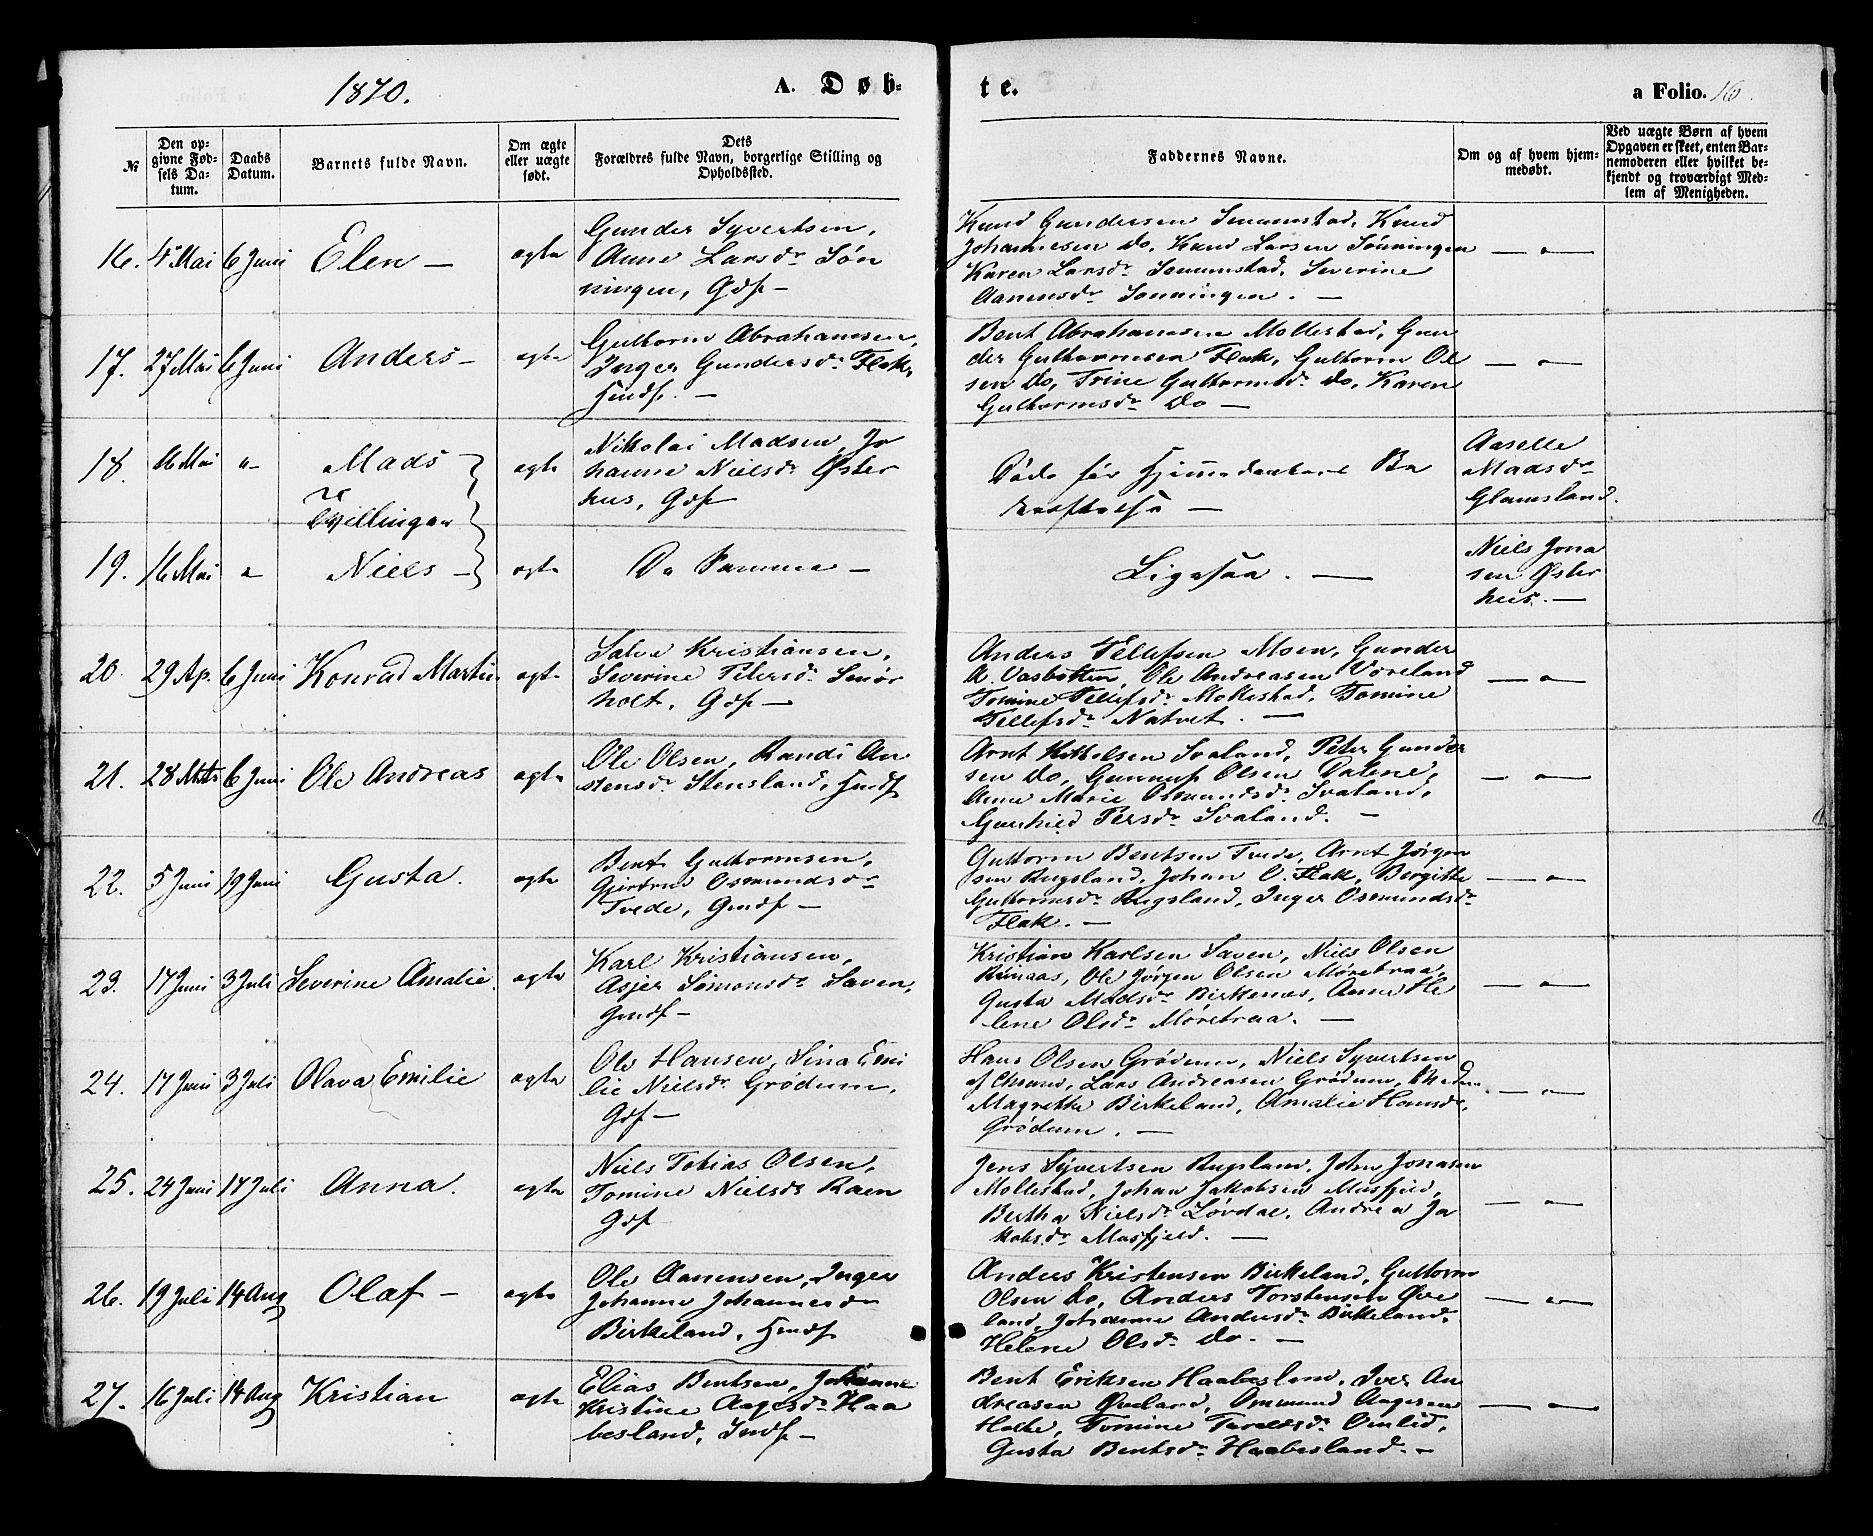 1870.
A. Døb-
te.
a Folio. 16.
№
Den op-
givne Fød-
sels Da-
tum.
Daabs
Datum.
Barnets fulde Navn.
Om ægte
eller uægte
født.
Dets
Forældres fulde Navn, borgerlige Stilling og
Opholdssted.
Faddernes Navne.
Om og af hvem hjem-
medøbt.
Ved uægte Børn af hvem
Opgaven er skeet, enten Bar-
nemoderen eller hvilket be-
kjendt og troværdigt Med-
lem af Menigheden.
16. Mai 6 Juni Elen – ægte
Gunder Syvertsen,
Anne Larsdr Søn
ningen, Gdf –
Knud Gundersen Senumstad, Knud
Johannesen Do, Knud Larsen Sönningen
Karen Larsdr Senumstad, Severine
Aanensdr Sonningen. –
— „ —
17. 27 Mai 6 Juni Anders – ægte
Guttorm Abrahamsen,
Inger Gundersdr Flak,
Hmdf. –
Bent Abrahamsen Mollestad, Gun
der Guttormsen Flak, Guttorm Ol
sen Do, Trine Guttormsdr Do, Karen
Guttormsdr Do –
— „ —
18. 16 Mai „ Mads ægte
Tvillinger
Nikolai Madsen, Jo
hanne Nielsdr Øster
hus, Gdf
Døde før Hjemmedaabens Be
kræftelse –
Aaselle
Madsdr
Glamsland.
19. 16 Mai „ Niels – ægte
De Samme –
Ligesaa. —
Niels Jona
sen Øster
hus. –
20. 29 Ap. 6 Juni Konrad Martin ægte
Salve Kristiansen,
Severine Petersdr Smør
holt, Gdf –
Anders Tellefsen Moen, Gunder
A. Vasbotten, Ole Andreasen Voreland
Tomine Tellefsdr Mollestad, Tomine
Tellefsdr Natvet. –
— „ —
21. 28 6 Juni Ole Andreas ægte
Ole Olsen, Randi An
stensdr Stensland, Hmdf
Arnt Svaland, Peter Gunder
sen Do, Olsen Dalene,
Anne Marie Osmundsdr Svaland,
Gunhild Persdr Svaland. –
— „ —
22. 5 Juni 19 Juni Gusta. ægte
Bent Guttormsen,
Gjertrud Osmundsdr
Tvede, Gmdf –
Guttorm Bentsen Tvede, Arnt Jørgen
sen Rugsland, Johan O. Flak, Bergitte
Guttormsdr Rugsland, Inger Osmundsdr
Flak. –
— „ —
23. 17 Juni 3 Juli Severine Amalie. ægte
Karl Kristiansen,
Asjer Simonsdr Saven,
Gmdf –
Kristian Karlsen Saven, Niels Olsen
Ole Jørgen Olsen Møretraa,
Gusta Madsdr Birkenes, Anne He
lene Olsdr Møretraa. –
— „ —
24. 17 Juni 3 Juli Olava Emilie ægte
Ole Hansen, Sina Emi
lie Nielsdr Grødum,
Gdf –
Hans Olsen Grødum, Niels Syvertsen
af Chrsand, Lars Andreasen Grødum,
Magrethe Birkeland, Amalie Hansdr,
Grødum. –
— „ —
25. 24 Juni 17 Juli Anna. ægte
Niels Tobias Olsen,
Tomine Nielsdr Raen
Gdf
Jens Syvertsen Rugsland, John Jonasen
Mollestad, Johan Jakobsen Masfjeld,
Bertha Nielsdr Lørdal, Andrea Ja
kobsdr Masfjeld. –
— „ —
26. 19 Juli 14 Aug Olaf – ægte
Ole Aanensen, Inger
Johanne Johannesdr
Birkeland, Hmdf
Anders Kristensen Birkeland, Guttorm
Olsen Do, Anders Torstensen Øve
land, Johanne Andersdr Birkeland,
Helene Olsdr Do. –
— „ —
27. 16 Juli 14 Aug Kristian ægte
Elias Bentsen, Johanne
Kristine Aagesdr Haa
besland, Indf –
Bent Eriksen Haabesland, Iver An
dreasen Øveland, Ommund Aagesen
Tomine Omlid,
Gusta Bentsdr Haabesland. –
— „ —